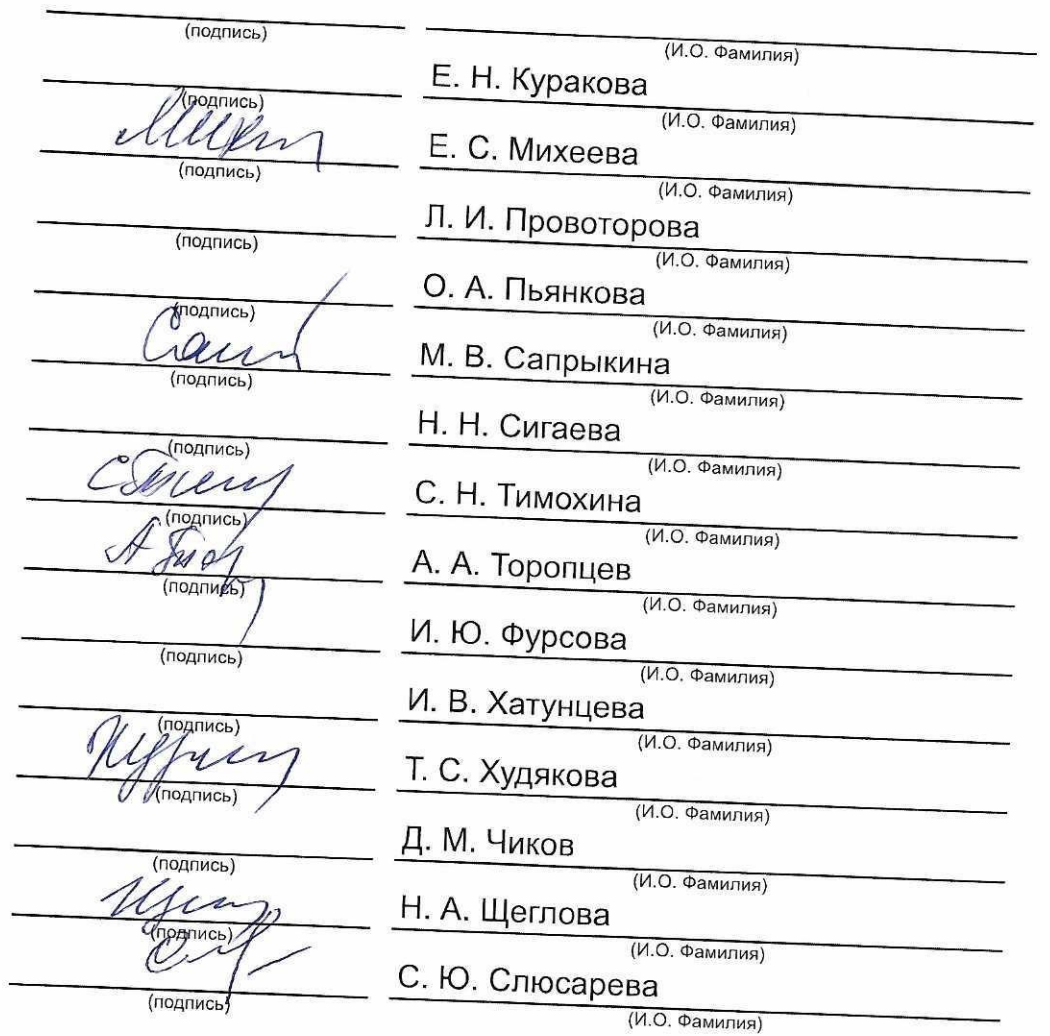 (подпись) (И.О. Фамилия)
Е. Н. Куракова
(подпись) (И.О. Фамилия)
Е. С. Михеева
(подпись) (И.О. Фамилия)
Л. И. Провоторова
(подпись) (И.О. Фамилия)
О. А. Пьянкова
(подпись) (И.О. Фамилия)
М. В. Сапрыкина
(подпись) (И.О. Фамилия)
Н. Н. Сигаева
(подпись) (И.О. Фамилия)
С. Н. Тимохина
(подпись) (И.О. Фамилия)
А. А. Торопцев
(подпись) (И.О. Фамилия)
И. Ю. Фурсова
(подпись) (И.О. Фамилия)
И. В. Хатунцева
(подпись) (И.О. Фамилия)
Т. С. Худякова
(подпись) (И.О. Фамилия)
Д. М. Чиков
(подпись) (И.О. Фамилия)
Н. А. Щеглова
(подпись) (И.О. Фамилия)
С. Ю. Слюсарева
(подпись) (И.О. Фамилия)